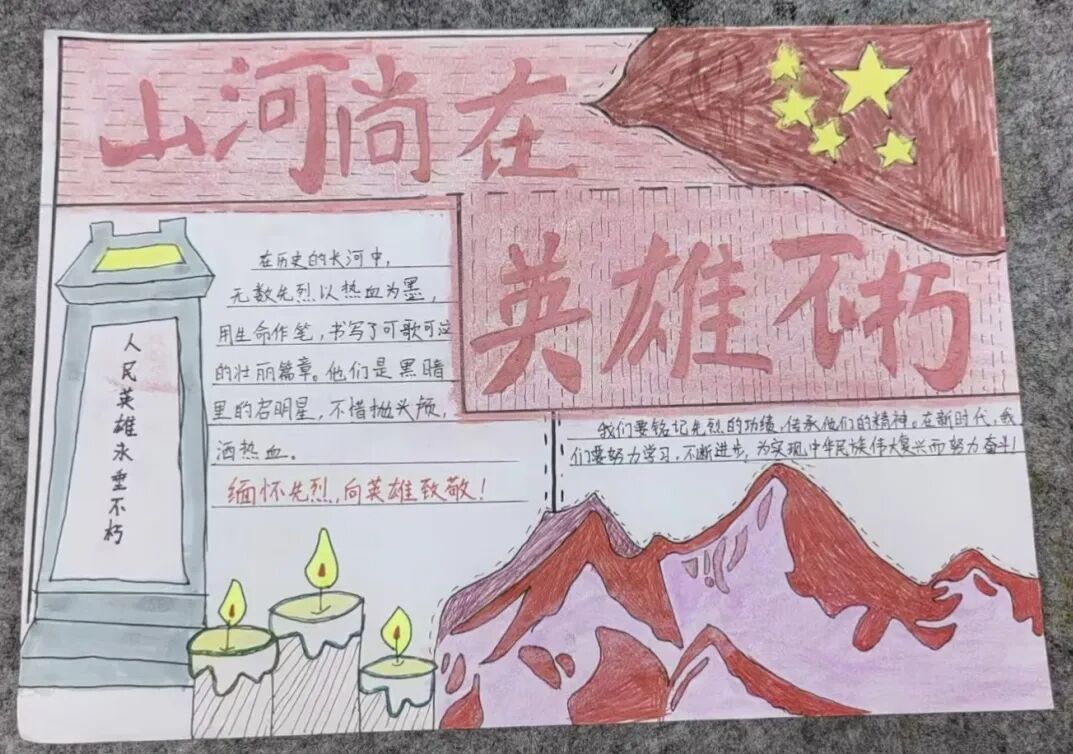 山河尚在
英雄不朽
人民英雄永垂不朽
在历史的长河中，
无数先烈以热血为墨，
用生命作笔，书写了可歌可泣
的壮丽篇章。他们是黑暗
里的启明星，不惜抛头颅，
洒热血。
缅怀先烈，向英雄致敬！
我们要铭记先烈的功绩，传承他们的精神。在新时代，我
们要努力学习，不断进步，为实现中华民族伟大复兴而努力奋斗！